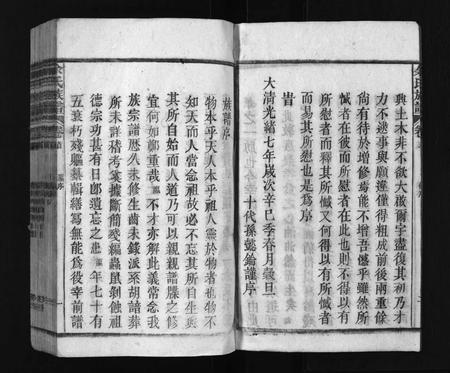 興土木非不欲大啟爾宇盡復其初乃才
力不逮事與願違僅得粗成前後兩重餘
尚有待於增修焉能不增吾憾乎雖然所
憾者在彼而所慰者在此也則不得以有
所慰者而釋其所憾又何得以有所憾者
而易其所慰也是為序
旹
大清光緒七年歲次辛巳季春月穀旦
十代孫懿綸謹序
族譜序
物本乎天人本乎祖人靈於物者也物不
知天而人當念祖故必不忘其所自生與
其所自始而人道乃可以親親譜牒之修
宜何如鄭重哉不才亦解此義常念我
族宗譜歷久未修生齒未錄派系胡諳葬
所未詳稽考篆據斷簡殘編蟲鼠剝蝕祖
德宗功甚有日即遺忘之患年七十有
五衰朽殘軀纂輯繕寫無能為役幸前譜